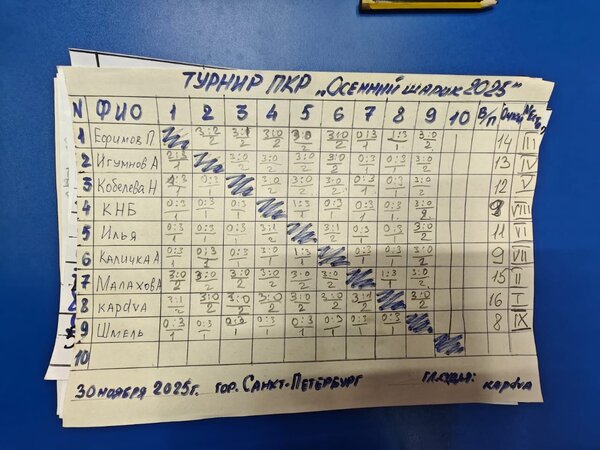 ТУРНИР ПКР „Осенний шарик 2025"
N ФИО 1 2 3 4 5 6 7 8 9 10 В/П Очки Место
1 Ефимов П 3:2/2 3:1/2 3:0/2 3:0/2 3:0/2 0:3/1 1:3/1 3:0/2 14 III
2 Игумнов А 2:3/1 3:0/2 3:0/2 3:0/2 3:0/2 0:3/1 0:3/1 3:0/2 13 IV
3 Кобелева Н 1:3/1 0:3/1 3:0/2 3:0/2 3:0/2 0:3/1 0:3/1 3:0/2 12 V
4 КНБ 0:3/1 0:3/1 0:3/1 1:3/1 0:3/1 0:3/1 0:3/1 3:0/2 9 VIII
5 Илья 0:3/1 0:3/1 0:3/1 3:1/2 3:1/2 0:3/1 0:3/1 3:0/2 11 VI
6 Каличка А 0:3/1 0:3/1 0:3/1 3:0/2 1:3/1 0:3/1 0:3/1 3:0/2 9 VII
7 Малахов А 3:0/2 3:0/2 3:0/2 3:0/2 3:0/2 3:0/2 1:3/1 3:0/2 15 II
8 карdva 3:1/2 3:0/2 3:0/2 3:0/2 3:0/2 3:0/2 3:1/2 3:0/2 16 I
9 Шмель 0:3/1 0:3/1 0:3/1 0:3/1 0:3/1 0:3/1 0:3/1 0:3/1 8 IX
10
30 ноября 2025г. гор. Санкт-Петербург гл. судья: карdva